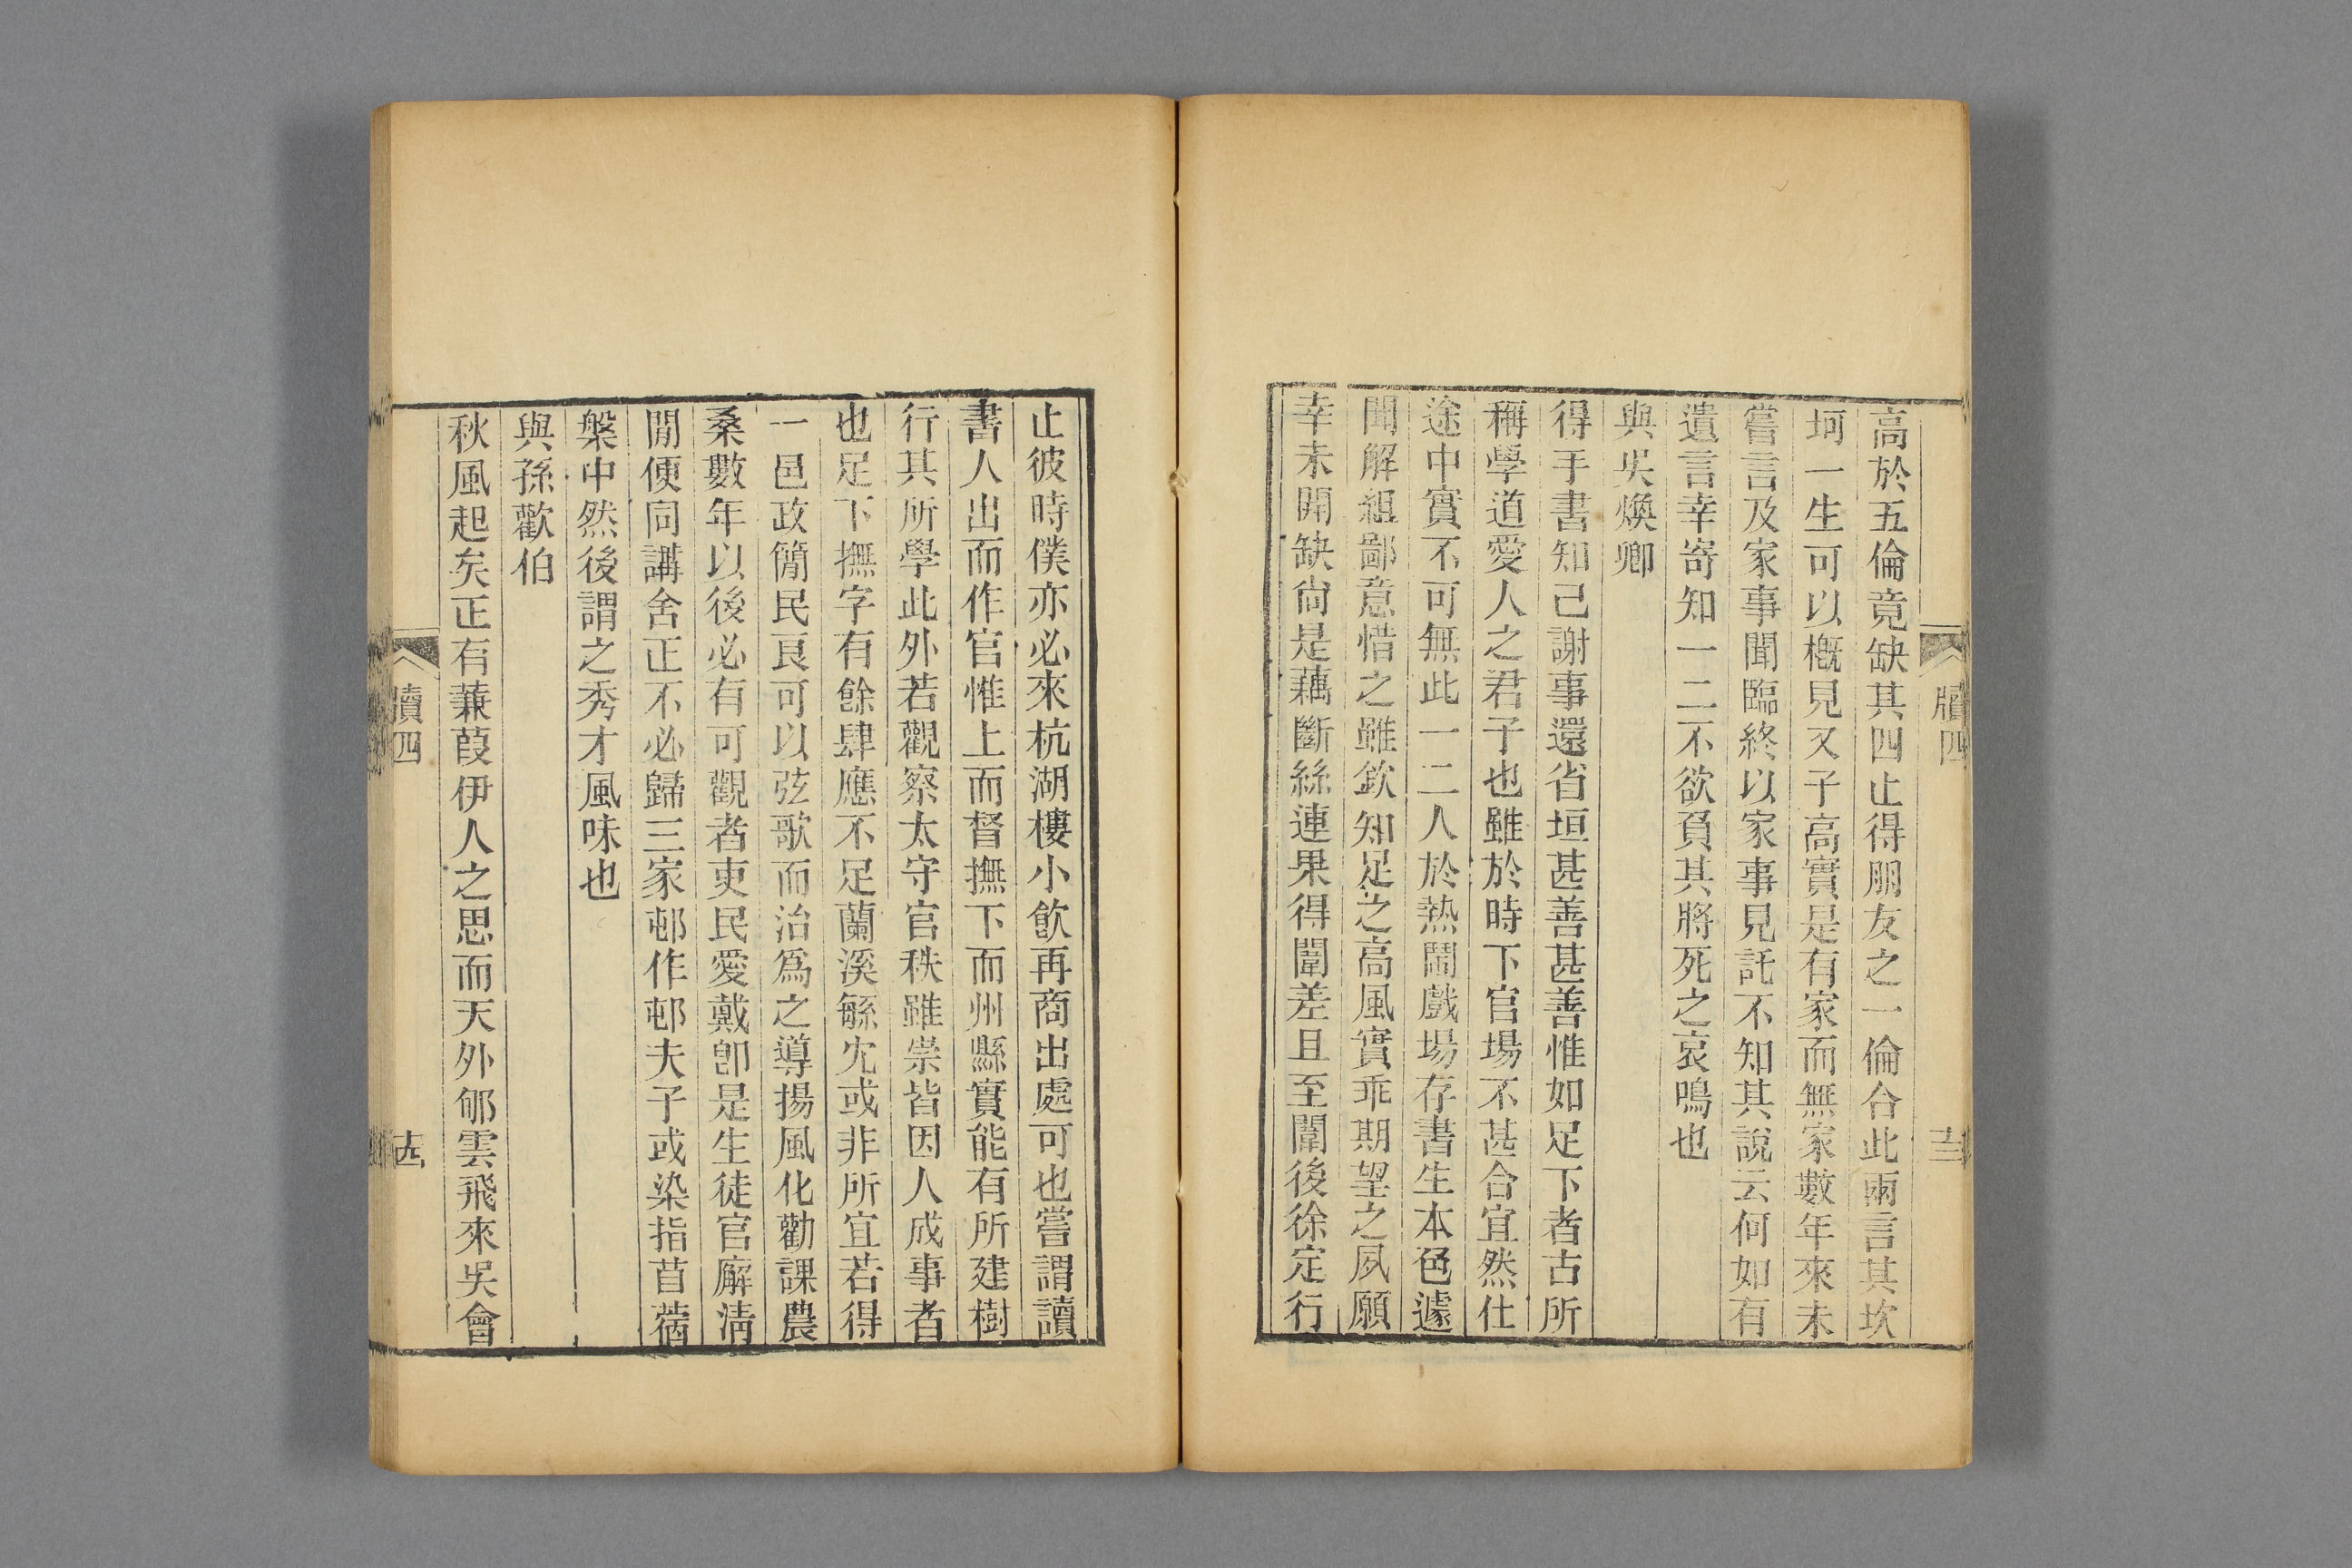 牘四
十三
高於五倫竟缺其四止得朋友之一倫合此兩言其坎
坷一生可以槪見又子高實是有家而無家數年來未
嘗言及家事聞臨終以家事見託不知其說云何如有
遺言幸寄知一二不欲負其將死之哀鳴也
與吳煥卿
得手書知己謝事還省垣甚善甚善惟如足下者古所
稱學道愛人之君子也雖於時下官場不甚合宜然仕
途中實不可無此一二人於熱鬧戲場存書生本色遽
聞解組鄙意惜之雖欽知足之高風實乖期望之夙願
幸未開缺尙是藕斷絲連果得闈差且至闈後徐定行
止彼時僕亦必來杭湖樓小飮再商出處可也嘗謂讀
書人出而作官惟上而督撫下而州縣實能有所建樹
行其所學此外若觀察太守官秩雖崇皆因人成事者
也足下撫字有餘肆應不足蘭溪緐宂或非所宜若得
一邑政簡民良可以弦歌而治爲之導揚風化勸課農
桑數年以後必有可觀者吏民愛戴卽是生徒官廨淸
閒便同講舍正不必歸三家邨作邨夫子或染指苜蓿
槃中然後謂之秀才風味也
與孫歡伯
秋風起矣正有蒹葭伊人之思而天外郇雲飛來吳會
牘四
十四